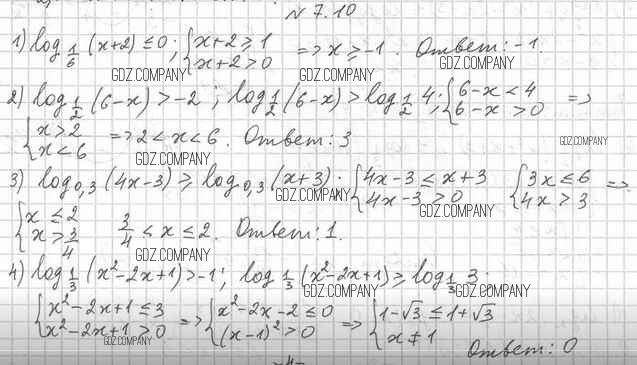 № 7.10
1) log_{1/6} (x+2) ≤ 0; { x+2 ≥ 1 x+2 > 0 => x ≥ -1. Ответ: -1.
GDZ.COMPANY GDZ.COMPANY GDZ.COMPANY
2) log_{1/2} (6-x) > -2; log_{1/2} (6-x) > log_{1/2} 4; { 6-x < 4 6-x > 0 =>
GDZ.COMPANY GDZ.COMPANY
{ x > 2 x < 6 => 2 < x < 6. Ответ: 3
GDZ.COMPANY GDZ.COMPANY
3) log_{0,3} (4x-3) ≥ log_{0,3} (x+3). { 4x-3 ≤ x+3 4x-3 > 0 { 3x ≤ 6 4x > 3 =>
GDZ.COMPANY GDZ.COMPANY
{ x ≤ 2 x > 3/4 3/4 < x ≤ 2. Ответ: 1.
GDZ.COMPANY
4) log_{1/3} (x²-2x+1) > -1; log_{1/3} (x²-2x+1) ≥ log_{1/3} 3;
GDZ.COMPANY GDZ.COMPANY GDZ.COMPANY
{ x²-2x+1 ≤ 3 x²-2x+1 > 0 => { x²-2x-2 ≤ 0 (x-1)² > 0 => { 1-√3 ≤ 1+√3 x ≠ 1
GDZ.COMPANY
Ответ: 0